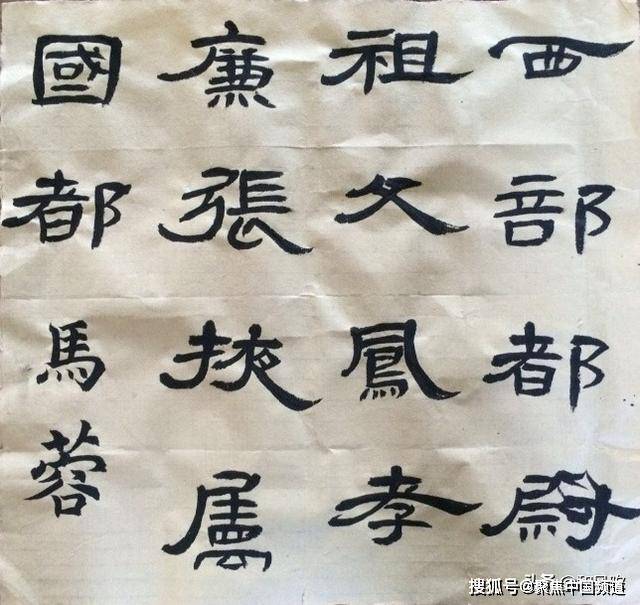 西部都尉
祖父鳳孝
廉張掖屬
國都
馬蓉
搜狐号@聚焦中国频道